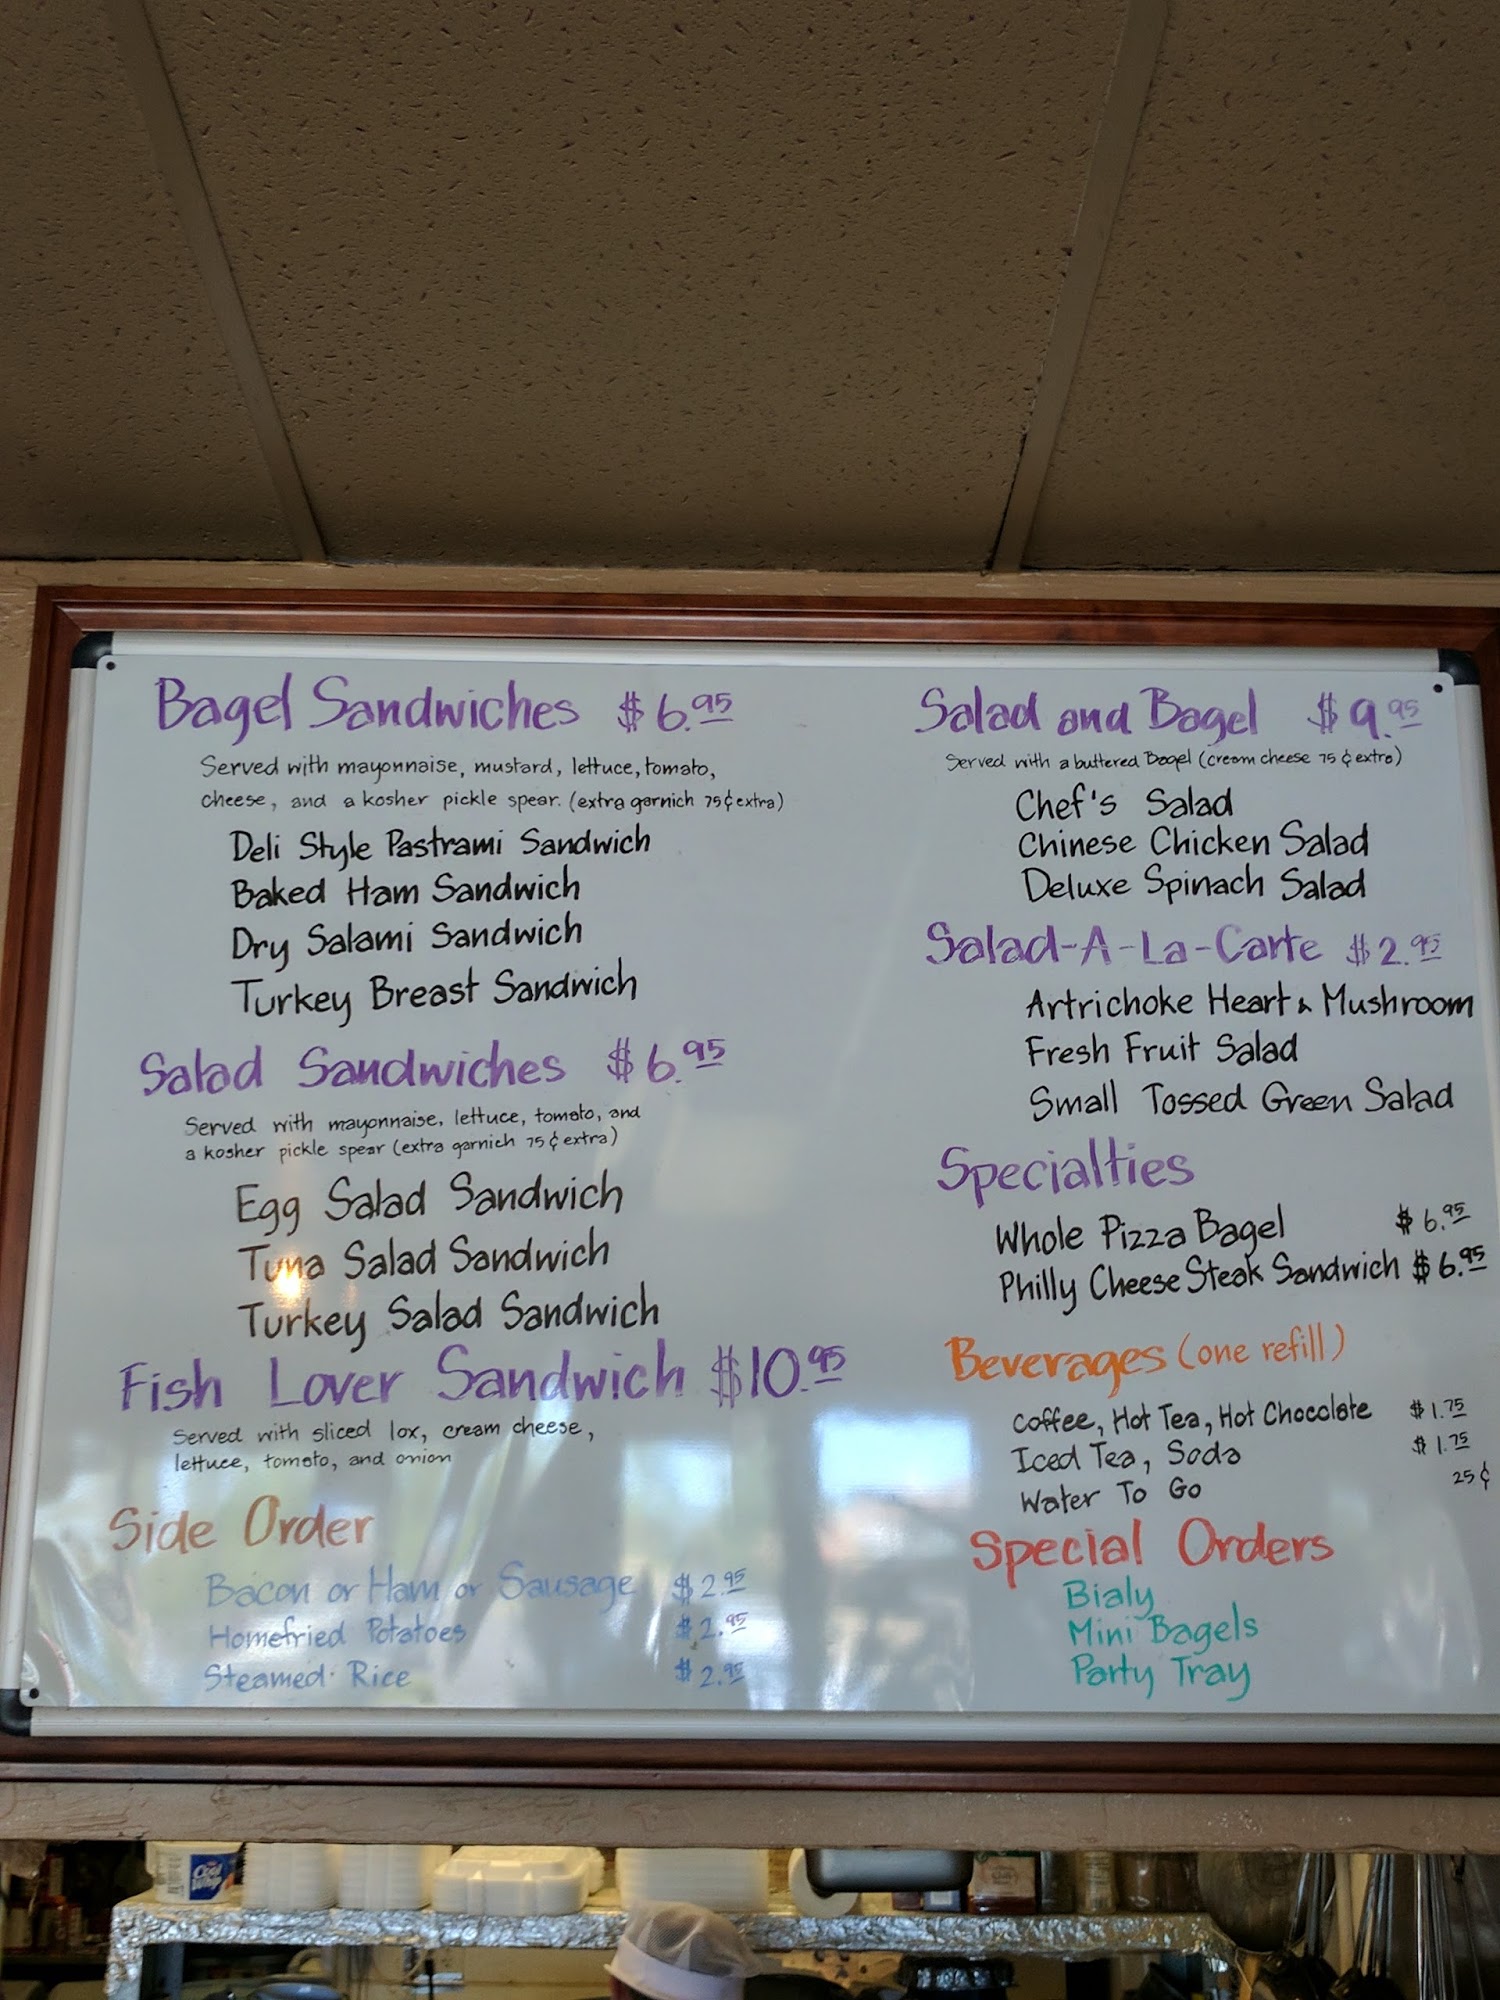 Bagel Sandwiches $6.95
Served with mayonnaise, mustard, lettuce, tomato,
cheese, and a kosher pickle spear. (extra garnich 75¢ extra)
Deli Style Pastrami Sandwich
Baked Ham Sandwich
Dry Salami Sandwich
Turkey Breast Sandwich
Salad Sandwiches $6.95
Served with mayonnaise, lettuce, tomato, and
a kosher pickle spear (extra garnich 75¢ extra)
Egg Salad Sandwich
Tuna Salad Sandwich
Turkey Salad Sandwich
Fish Lover Sandwich $10.95
Served with sliced lox, cream cheese,
lettuce, tomato, and onion
Side Order
Bacon or Ham or Sausage $2.95
Homefried Potatoes $2.95
Steamed Rice $2.95
Salad and Bagel $9.95
Served with a buttered Bagel (cream cheese 75¢ extra)
Chef's Salad
Chinese Chicken Salad
Deluxe Spinach Salad
Salad-A-La-Carte $2.95
Artrichoke Heart & Mushroom
Fresh Fruit Salad
Small Tossed Green Salad
Specialties
Whole Pizza Bagel $6.95
Philly Cheese Steak Sandwich $6.95
Beverages (one refill)
Coffee, Hot Tea, Hot Chocolate $1.75
Iced Tea, Soda $1.75
Water To Go 25¢
Special Orders
Bialy
Mini Bagels
Party Tray
Cool
Whip